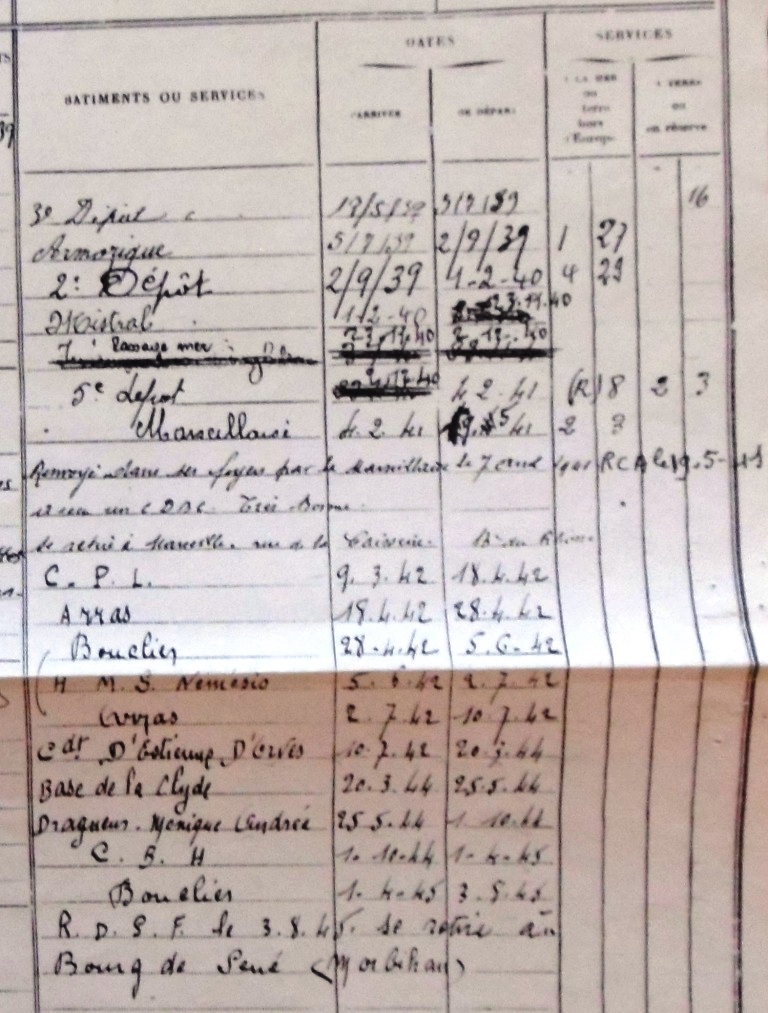 DATES SERVICES
BATIMENTS OU SERVICES D'ARRIVÉE DE DÉPART A LA MER ou terre hors d'Europe A TERRE ou en réserve
39
3e Dépôt 5/7/39 16
Armorique 5/7/39 2/9/39 1 27
2e Dépôt 2/9/39 1-2-40 4 29
Mistral 1-2-40 23.11.40
Passage mer 23.11.40 2-12-40
5e Dépôt 2.12.40 4.2.41 (R) 8 2 3
Marseillaise 4.2.41 5 41 2 3
Renvoyé dans ses foyers par le Marseillaise le 7 RCA le 19.5-
un C Très Bonne
se retire à Marseille rue de la
C. P. L. 9.3.42 18.4.42
Arras 18.4.42 28.4.42
Bouclier 28-4.42 5.6-42
H M. S. Nemesis 5.6.42 2.7.42
Arras 2.7.42 10.7.42
Cdt D'Estienne D'Orves 10.7.42 20.3.44
Base de la Clyde 20.3.44 25.5.44
Dragueur. Monique Andrée 25.5.44 1.10.44
C. B. H 1-10-44 1-4-45
Bouclier 1.4-45 3.8.45
R. D. S. F. le 3.8.45. se retire au
Bourg de Séné (Morbihan)